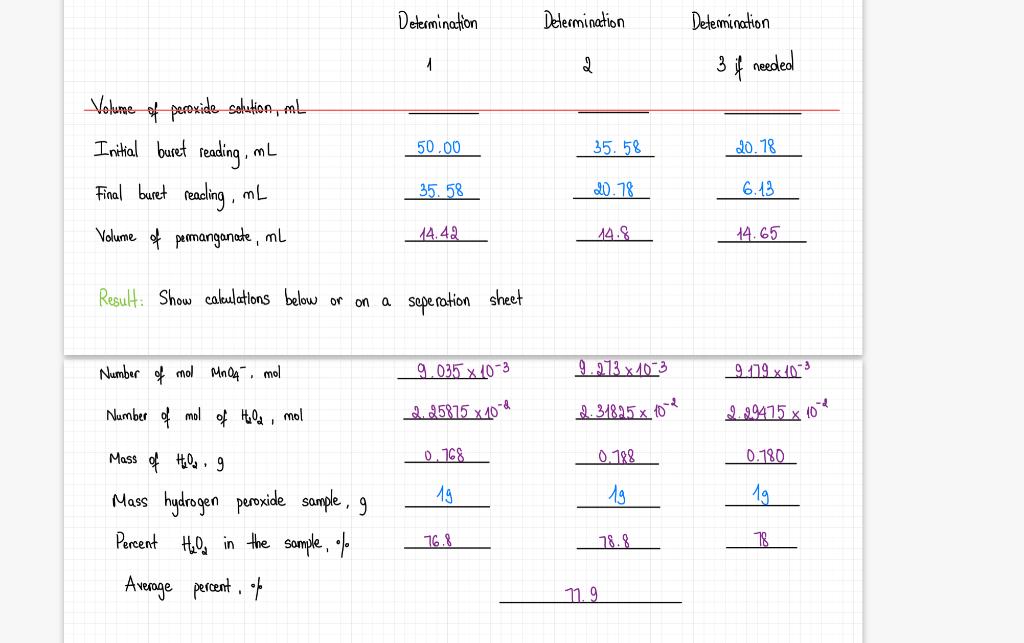 Determination Determination Determination
1 2 3 if needed
Volume of peroxide solution, mL
Initial buret reading, mL 50.00 35.58 20.78
Final buret reading, mL 35.58 20.78 6.13
Volume of permanganate, mL 14.42 14.8 14.65
Result: Show calculations below or on a seperation sheet
Number of mol MnO4⁻, mol 9.035 x 10⁻³ 9.273 x 10⁻³ 9.179 x 10⁻³
Number of mol of H₂O₂, mol 2.25875 x 10⁻² 2.31825 x 10⁻² 2.29475 x 10⁻²
Mass of H₂O₂, g 0.768 0.788 0.780
Mass hydrogen peroxide sample, g 1g 1g 1g
Percent H₂O₂ in the sample, % 76.8 78.8 78
Average percent, % 77.9